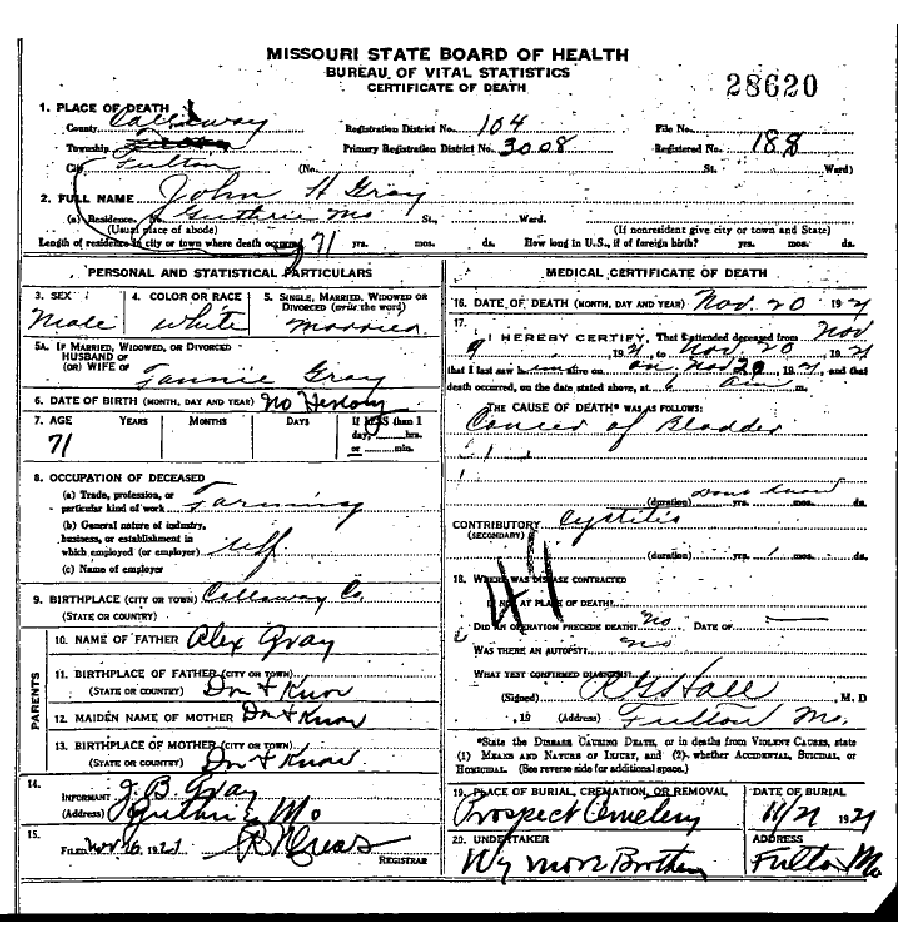 MISSOURI STATE BOARD OF HEALTH
BUREAU OF VITAL STATISTICS
CERTIFICATE OF DEATH
28620
1. PLACE OF DEATH
County Callaway Registration District No. 104 File No.
Township Primary Registration District No. 3008 Registered No. 188
City Fulton (No. St. Ward)
2. FULL NAME John H Gray
(a) Residence. No. Guthrie Mo St., Ward.
(Usual place of abode) (If nonresident give city or town and State)
Length of residence in city or town where death occurred 71 yrs. mos. ds. How long in U.S., if of foreign birth? yrs. mos. ds.
PERSONAL AND STATISTICAL PARTICULARS
3. SEX 4. COLOR OR RACE 5. SINGLE, MARRIED, WIDOWED OR
DIVORCED (write the word)
Male White Married.
5A. IF MARRIED, WIDOWED, OR DIVORCED
HUSBAND OF
(OR) WIFE OF Fannie Gray
6. DATE OF BIRTH (MONTH, DAY AND YEAR) No History
7. AGE YEARS MONTHS DAYS If LESS than 1
71 day, hrs.
or min.
8. OCCUPATION OF DECEASED
(a) Trade, profession, or
particular kind of work Farming
(b) General nature of industry,
business, or establishment in
which employed (or employer)
(c) Name of employer
9. BIRTHPLACE (CITY OR TOWN) Callaway Co.
(STATE OR COUNTRY)
PARENTS
10. NAME OF FATHER Alex Gray
11. BIRTHPLACE OF FATHER (CITY OR TOWN)
(STATE OR COUNTRY) Don t Know
12. MAIDEN NAME OF MOTHER Don t Know
13. BIRTHPLACE OF MOTHER (CITY OR TOWN)
(STATE OR COUNTRY) Don t Know
14.
INFORMANT J. B. Gray
(Address) Guthrie Mo
15.
FILED Nov 1921
REGISTRAR
MEDICAL CERTIFICATE OF DEATH
16. DATE OF DEATH (MONTH, DAY AND YEAR) Nov. 20 1921
17.
I HEREBY CERTIFY, That I attended deceased from Nov
9, 1921, to Nov. 20, 1921
that I last saw him alive on Nov 20, 1921, and that
death occurred, on the date stated above, at 6 am m.
THE CAUSE OF DEATH* WAS AS FOLLOWS:
Cancer of Bladder
(duration) dont know ds.
CONTRIBUTORY Cystitis
(SECONDARY)
(duration) yrs. 1 mos. ds.
18. WHERE WAS DISEASE CONTRACTED
IF NOT AT PLACE OF DEATH?
DID AN OPERATION PRECEDE DEATH? No DATE OF
WAS THERE AN AUTOPSY? No
WHAT TEST CONFIRMED DIAGNOSIS?
(Signed) R G Hall, M. D
, 19 (Address) Fulton Mo.
*State the DISEASE CAUSING DEATH, or in deaths from VIOLENT CAUSES, state
(1) MEANS AND NATURE OF INJURY, and (2) whether ACCIDENTAL, SUICIDAL, or
HOMICIDAL. (See reverse side for additional space.)
19. PLACE OF BURIAL, CREMATION, OR REMOVAL DATE OF BURIAL
Prospect Cemetery 11/21 1921
20. UNDERTAKER ADDRESS
Brothers Fulton Mo